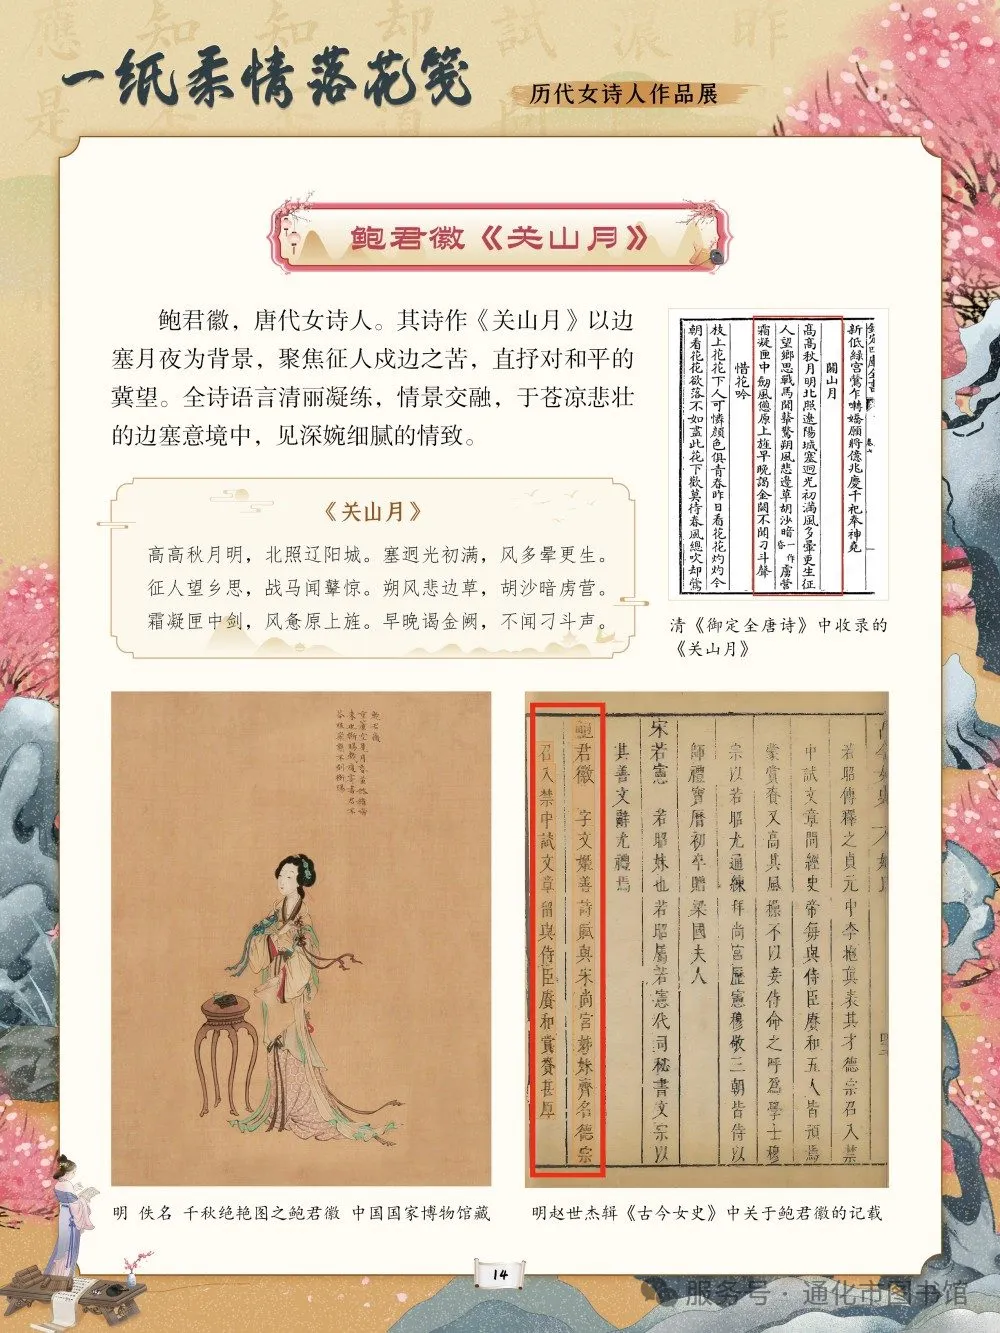 一纸柔情落花笺
历代女诗人作品展
鲍君徽《关山月》
鲍君徽，唐代女诗人。其诗作《关山月》以边
塞月夜为背景，聚焦征人戍边之苦，直抒对和平的
冀望。全诗语言清丽凝练，情景交融，于苍凉悲壮
的边塞意境中，见深婉细腻的情致。
《关山月》
高高秋月明，北照辽阳城。塞迥光初满，风多晕更生。
征人望乡思，战马闻鼙惊。朔风悲边草，胡沙暗虏营。
霜凝匣中剑，风惫原上旌。早晚谒金阙，不闻刁斗声。
新低綠宮鶯乍囀嬌願將億兆慶千祀奉神堯
關山月
高高秋月明北照遼陽城塞迥光初滿風多暈更生征
人望鄉思戰馬聞鼙驚朔風悲邊草胡沙暗一作昏虜營
霜凝匣中劒風憊原上旌早晚謁金闕不聞刁斗聲
惜花吟
枝上花花下人可憐顏色俱青春昨日看花花灼灼今
朝看花花欲落不如盡此花下歡莫待春風總吹却鶯
清《御定全唐诗》中收录的
《关山月》
鮑君徽
若昭傳釋之貞元中李抱真表其才德宗召入禁
中試文章問經史帝每與侍臣賡和五人皆預焉
蒙賞賚又高其風操不以妾侍命之呼爲學士穆
宗以若昭尤通練拜尚宮歷憲穆敬三朝皆侍以
師禮寶曆初卒贈梁國夫人
宋若憲 若昭妹也若昭屬若憲代司秘書文宗以
其善文辭尤禮焉
鮑君徽 字文姬善詩賦與宋尚宮姊妹齊名德宗
召入禁中試文章留與侍臣賡和賞賚甚厚
明 佚名 千秋绝艳图之鲍君徽 中国国家博物馆藏
明赵世杰辑《古今女史》中关于鲍君徽的记载
14
服务号·通化市图书馆